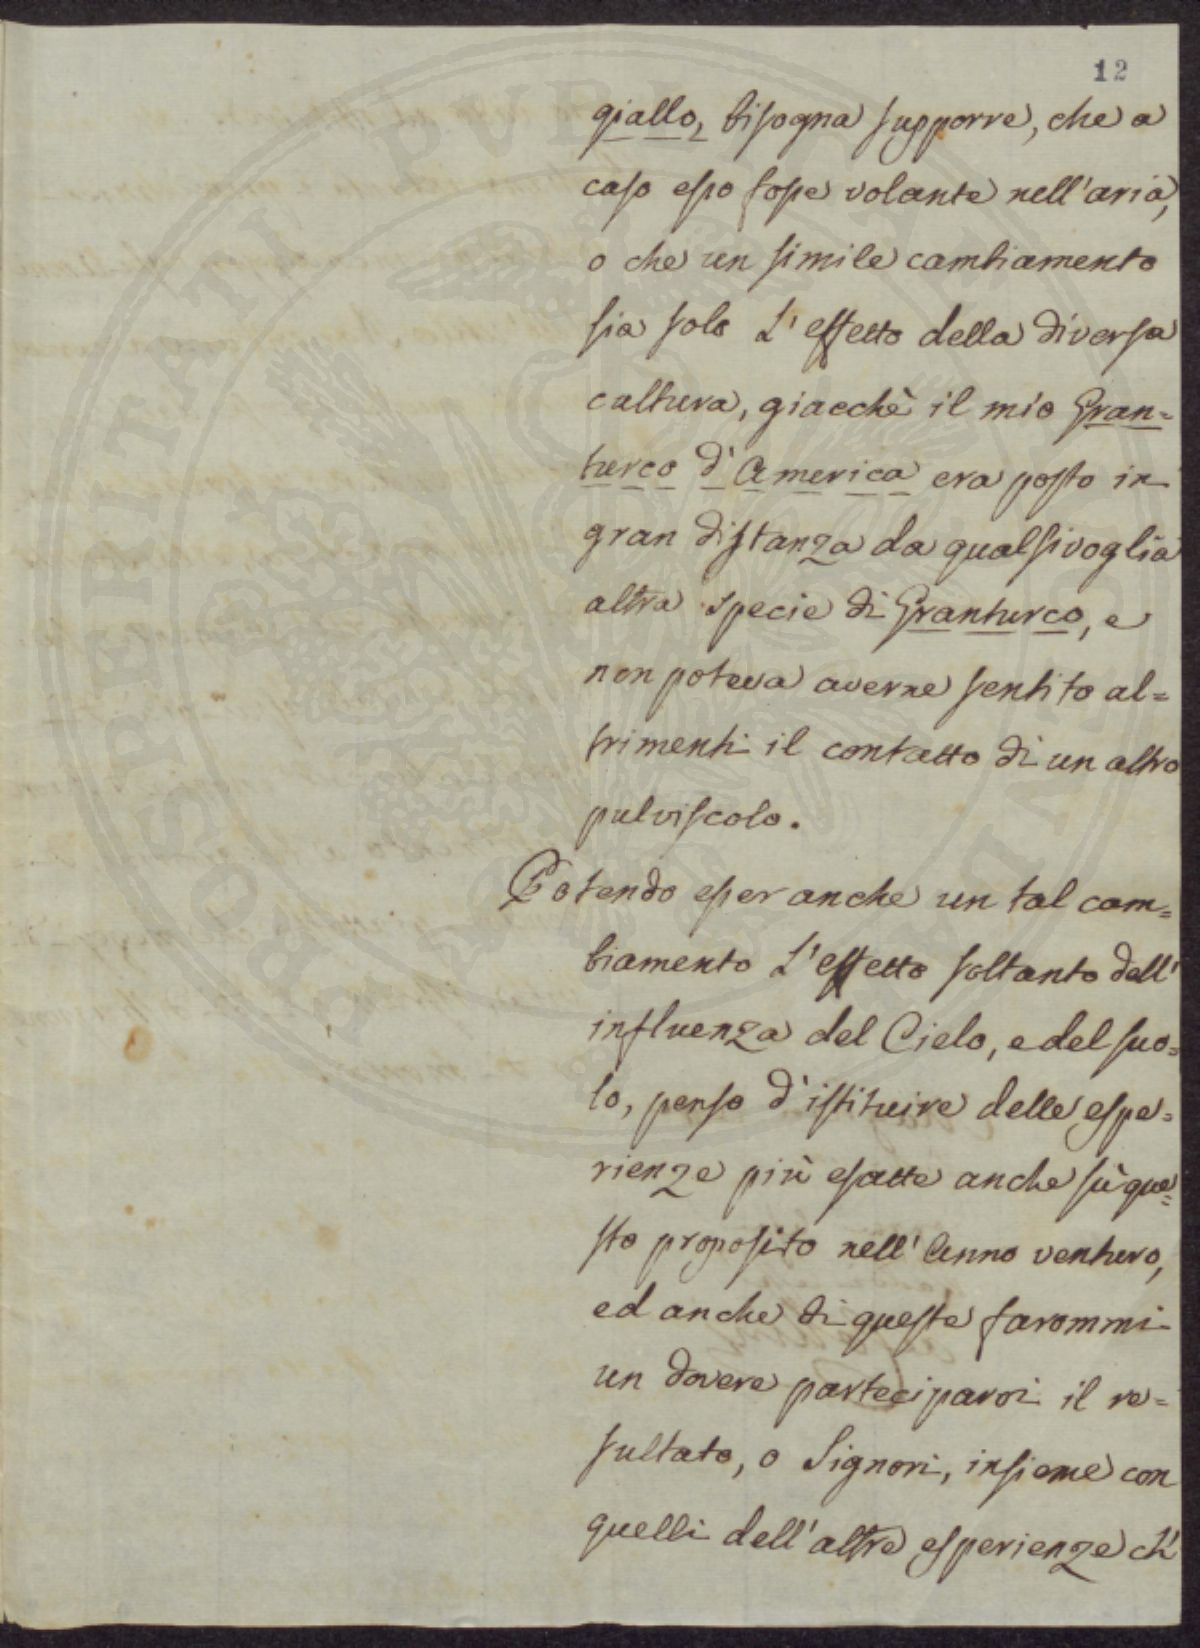 12
giallo, bisogna supporre, che a
caso esso fosse volante nell'aria,
o che un simile cambiamento
sia solo L'effetto della diversa
cultura, giacchè il mio Gran=
turco d'America era posto in
gran distanza da qualsivoglia
altra specie di Granturco, e
non poteva averne sentito al=
trimenti il contatto di un altro
pulviscolo.
Potendo esser anche un tal cam=
biamento L'effetto soltanto dell'
influenza del Cielo, e del suo=
lo, penso d'istituire delle espe=
rienze più esatte anche sù que=
sto proposito nell'Anno venturo,
ed anche di queste farommi
un dovere parteciparvi il re=
sultato, o Signori, insieme con
quelli dell'altre esperienze ch'
PROSPERITATI PUBLICAE